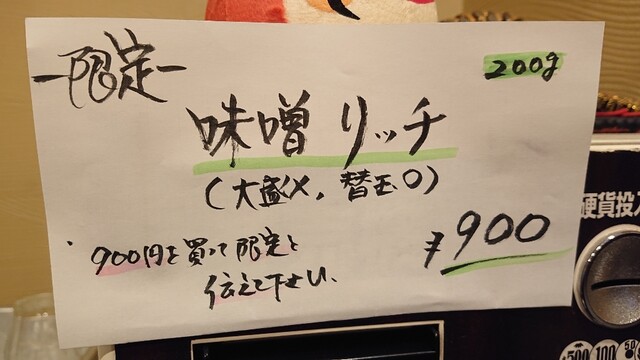 -限定-
200g
味噌リッチ
(大盛×, 替玉○)
¥900
・900円を買って限定と
伝えて下せい、
硬貨投入
500 100 50